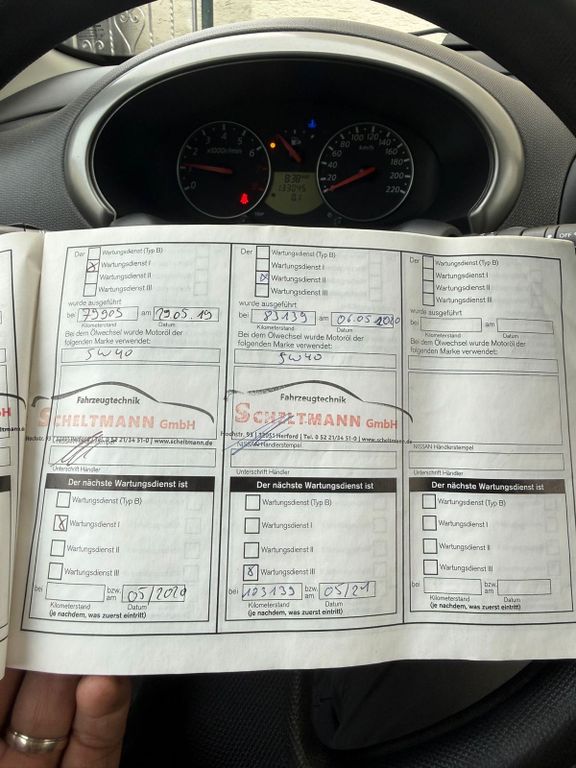 x1000r/min
km/h
0 2 4 5 6
20 40 60 80 100 120 140 160 180 200 220
8:38
133045
0.1
OFF
Der Wartungsdienst (Typ B)
X Wartungsdienst I
Wartungsdienst II
Wartungsdienst III
wurde ausgeführt
bei 79905 am 29.05.19
Kilometerstand Datum
Bei dem Ölwechsel wurde Motoröl der
folgenden Marke verwendet:
5W40
Fahrzeugtechnik
SCHELTMANN GmbH
32051 Herford | Tel. 0 52 21/34 51-0 | www.scheltmann.de
Unterschrift Händler
Der nächste Wartungsdienst ist
Wartungsdienst (Typ B)
X Wartungsdienst I
Wartungsdienst II
Wartungsdienst III
bei bzw. am 05/2020
Kilometerstand Datum
(je nachdem, was zuerst eintritt)
Der Wartungsdienst (Typ B)
Wartungsdienst I
X Wartungsdienst II
Wartungsdienst III
wurde ausgeführt
bei 83139 am 06.05.2020
Kilometerstand Datum
Bei dem Ölwechsel wurde Motoröl der
folgenden Marke verwendet:
5W40
Fahrzeugtechnik
SCHELTMANN GmbH
Herford | Tel. 0 52 21/34 51-0 | www.scheltmann.de
NISSAN Händlerstempel
Unterschrift Händler
Der nächste Wartungsdienst ist
Wartungsdienst (Typ B)
Wartungsdienst I
Wartungsdienst II
X Wartungsdienst III
bei 103139 bzw. am 05/21
Kilometerstand Datum
(je nachdem, was zuerst eintritt)
Der Wartungsdienst (Typ B)
Wartungsdienst I
Wartungsdienst II
Wartungsdienst III
wurde ausgeführt
bei am
Kilometerstand Datum
Bei dem Ölwechsel wurde Motoröl der
folgenden Marke verwendet:
NISSAN Händlerstempel
Unterschrift Händler
Der nächste Wartungsdienst ist
Wartungsdienst (Typ B)
Wartungsdienst I
Wartungsdienst II
Wartungsdienst III
bei bzw. am
Kilometerstand Datum
(je nachdem, was zuerst eintritt)